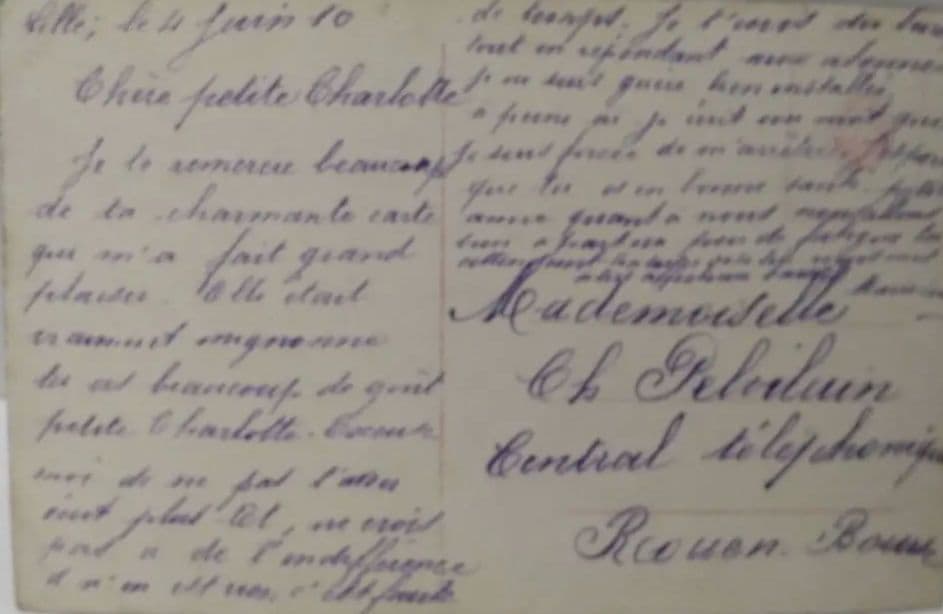 Lille, le 4 Juin 10
Chère petite Charlotte
Je te remercie beaucoup
de ta charmante carte
qui m'a fait grand
plaisir. Elle était
vraiment mignonne
tu as beaucoup de goût
petite Charlotte. Excuse
moi de ne pas t'avoir
écrit plus tôt, ne crois
pas a de l'indifférence
il n'en est rien, c'est faute
de temps. Je t'écris du
tout en répondant aux abonnés
Je ne suis guère bien installée,
a peine ai je écrit un mot que
Je suis forcée de m'arrêter.
que tu es en bonne santé petite
amie quant a nous
Mademoiselle
Ch
Central téléphonique
Rouen. Bourse